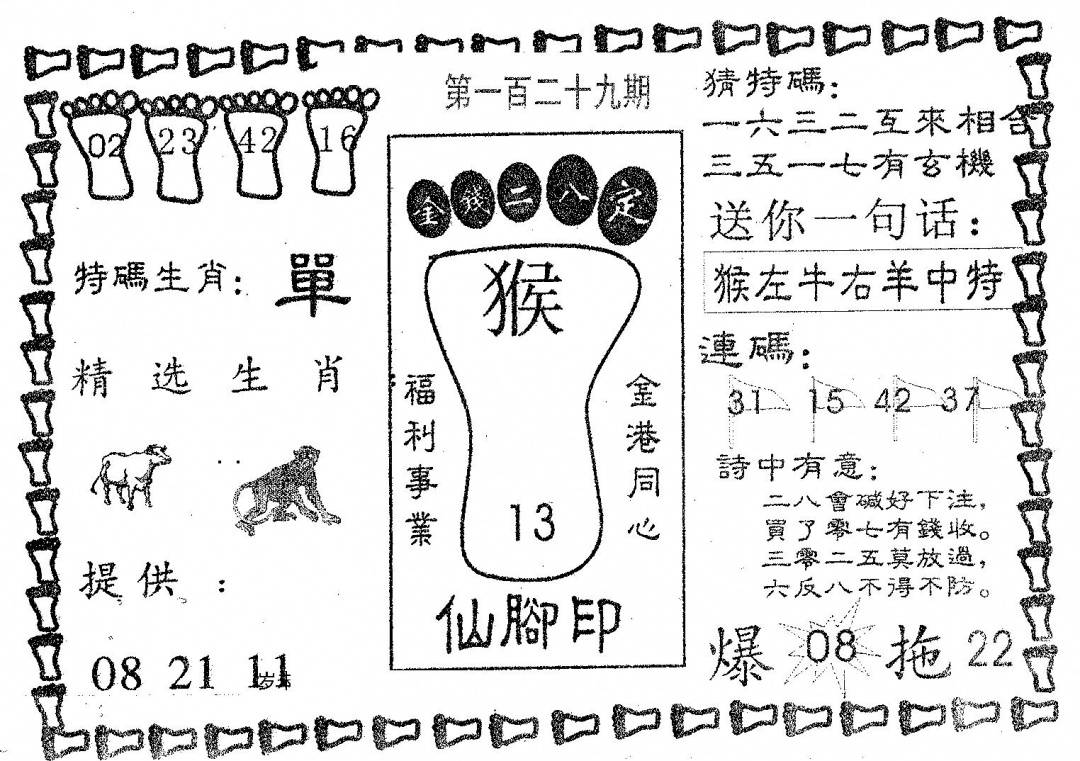 第一百二十九期
02 23 42 16
特碼生肖：單
精选生肖
提供：
08 21 11
金錢二八定
猴
13
福利事業
金港同心
仙腳印
猜特碼：
一六三二互來相合
三五一七有玄機
送你一句话：
猴左牛右羊中特
連碼：
31 15 42 37
詩中有意：
二八會碱好下注，
買了零七有錢收。
三零二五莫放過，
六反八不得不防。
爆 08 拖 22